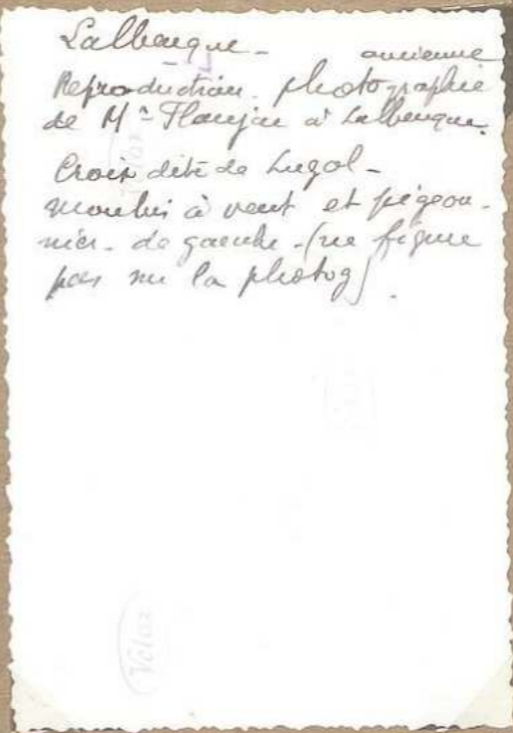 Lalbenque - ancienne
Reproduction. photographie
de Mr Flaujac à Lalbenque.
Croix dite de Lugol -
moulin à vent et pigeon-
nier - de gauche - (ne figure
pas sur la photog)
Velox